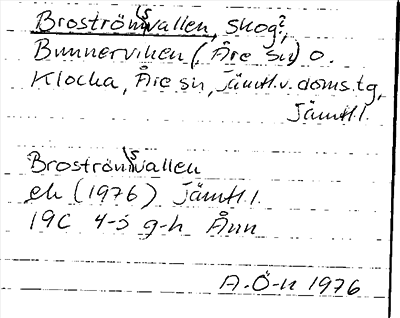 Broströmsvallen, skog?,
Bunnerviken (Åre sn) o.
Klocka, Åre sn, Jämtl.v. doms.tg,
Jämtl.
Broströmsvallen
ek (1976) Jämtl.
19C 4-5 g-h Ånn
A.Ö-n 1976